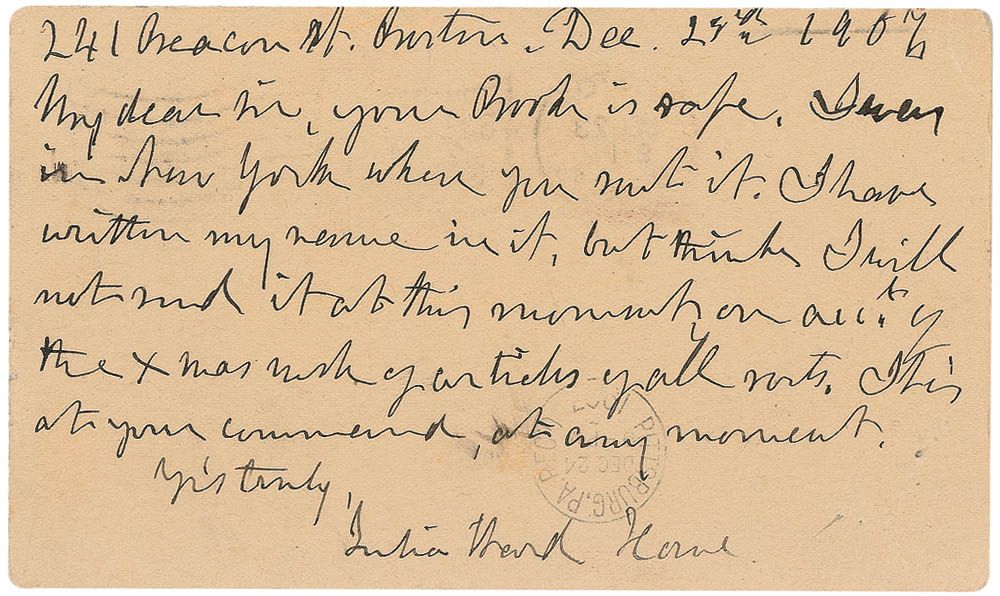 241 Beacon St. Boston. Dec. 23rd 1907
My dear sir, your Book is safe. I was
in New York when you sent it. I have
written my name in it, but think I will
not send it at this moment, on acc.t of
the Xmas rush of articles of all sorts. It is
at your command, at any moment.
Y'rs truly,
Julia Ward Howe
PITTSBURG, PA. REC'D
DEC 24
1907